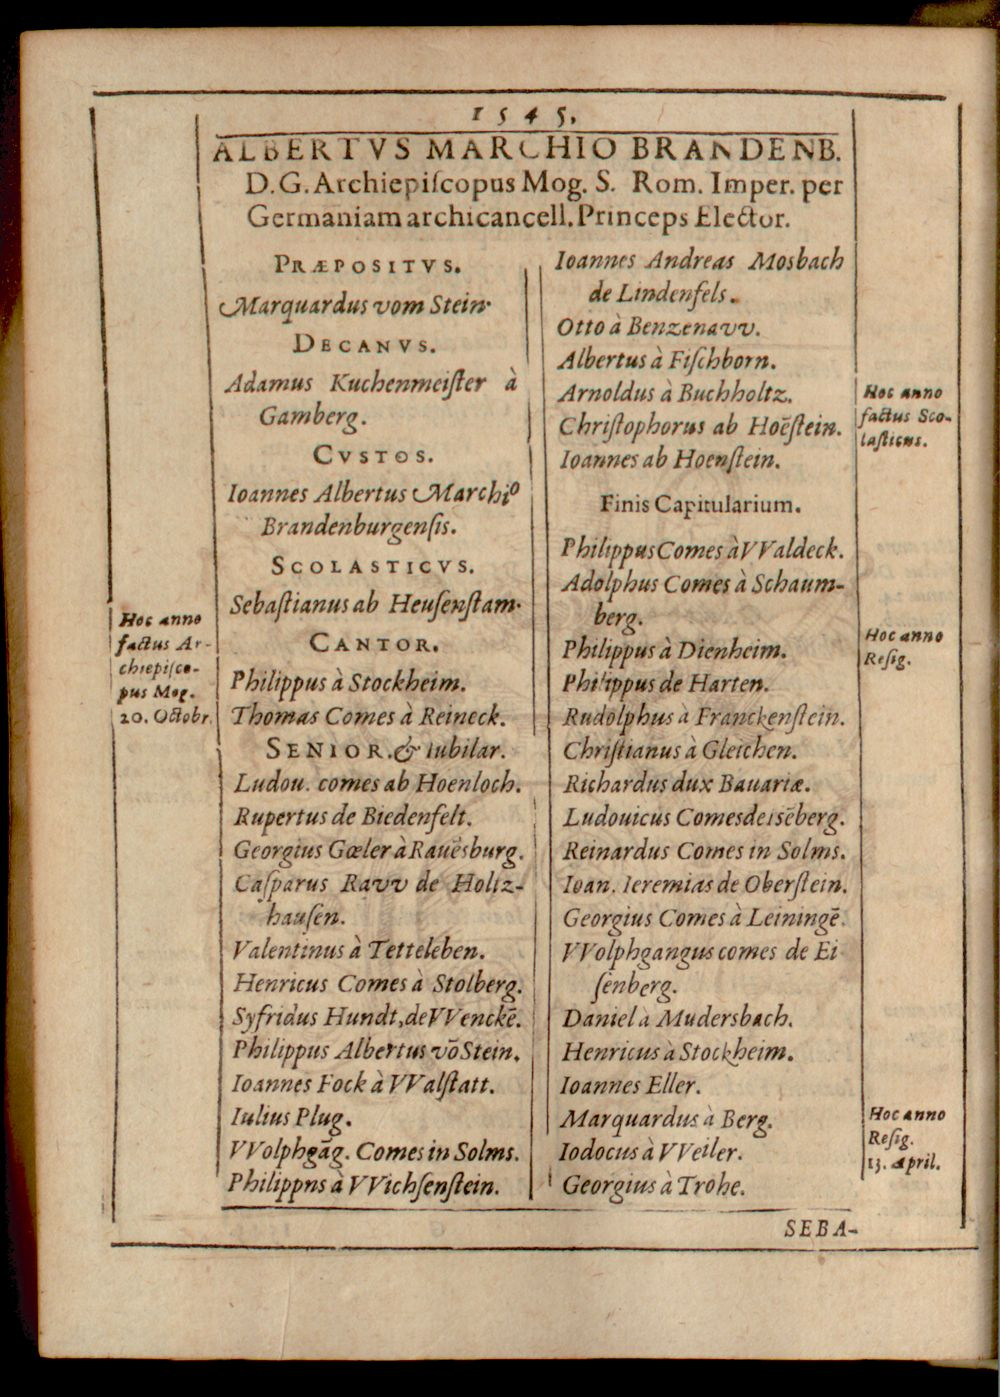 1545.
ALBERTVS MARCHIO BRANDENB.
D.G. Archiepiſcopus Mog. S. Rom. Imper. per
Germaniam archicancell. Princeps Elector.
PRÆPOSITVS.
Marquardus vom Stein.
DECANVS.
Adamus Kuchenmeiſter à
Gamberg.
CVSTOS.
Ioannes Albertus Marchio
Brandenburgenſis.
SCOLASTICVS.
Sebaſtianus ab Heuſenſtam.
Hoc anno
factus Ar-
chiepiſco-
pus Mog.
20. Octobr.
CANTOR.
Philippus à Stockheim.
Thomas Comes à Reineck.
SENIOR. & Iubilar.
Ludou. comes ab Hoenloch.
Rupertus de Biedenfelt.
Georgius Gœler à Rauēsburg.
Caſparus Ravv de Holtz-
hauſen.
Valentinus à Tetteleben.
Henricus Comes à Stolberg.
Syfridus Hundt, de VVenckē.
Philippus Albertus vō Stein.
Ioannes Fock à VValſtatt.
Iulius Plug.
VVolphgāg. Comes in Solms.
Philippns à VVichſenſtein.
Ioannes Andreas Mosbach
de Lindenfels.
Otto à Benzenavv.
Albertus à Fiſchborn.
Arnoldus à Buchholtz.
Hoc anno
factus Sco-
laſticus.
Chriſtophorus ab Hoēſtein.
Ioannes ab Hoenſtein.
Finis Capitularium.
Philippus Comes à VValdeck.
Adolphus Comes à Schaum-
berg.
Philippus à Dienheim.
Hoc anno
Reſig.
Philippus de Harten.
Rudolphus à Franckenſtein.
Chriſtianus à Gleichen.
Richardus dux Bauariæ.
Ludouicus Comes de iſēberg.
Reinardus Comes in Solms.
Ioan. Ieremias de Oberſtein.
Georgius Comes à Leiningē.
VVolphgangus comes de Ei
ſenberg.
Daniel à Mudersbach.
Henricus à Stockheim.
Ioannes Eller.
Marquardus à Berg.
Hoc anno
Reſig.
13. April.
Iodocus à VVeiler.
Georgius à Trohe.
SEBA-